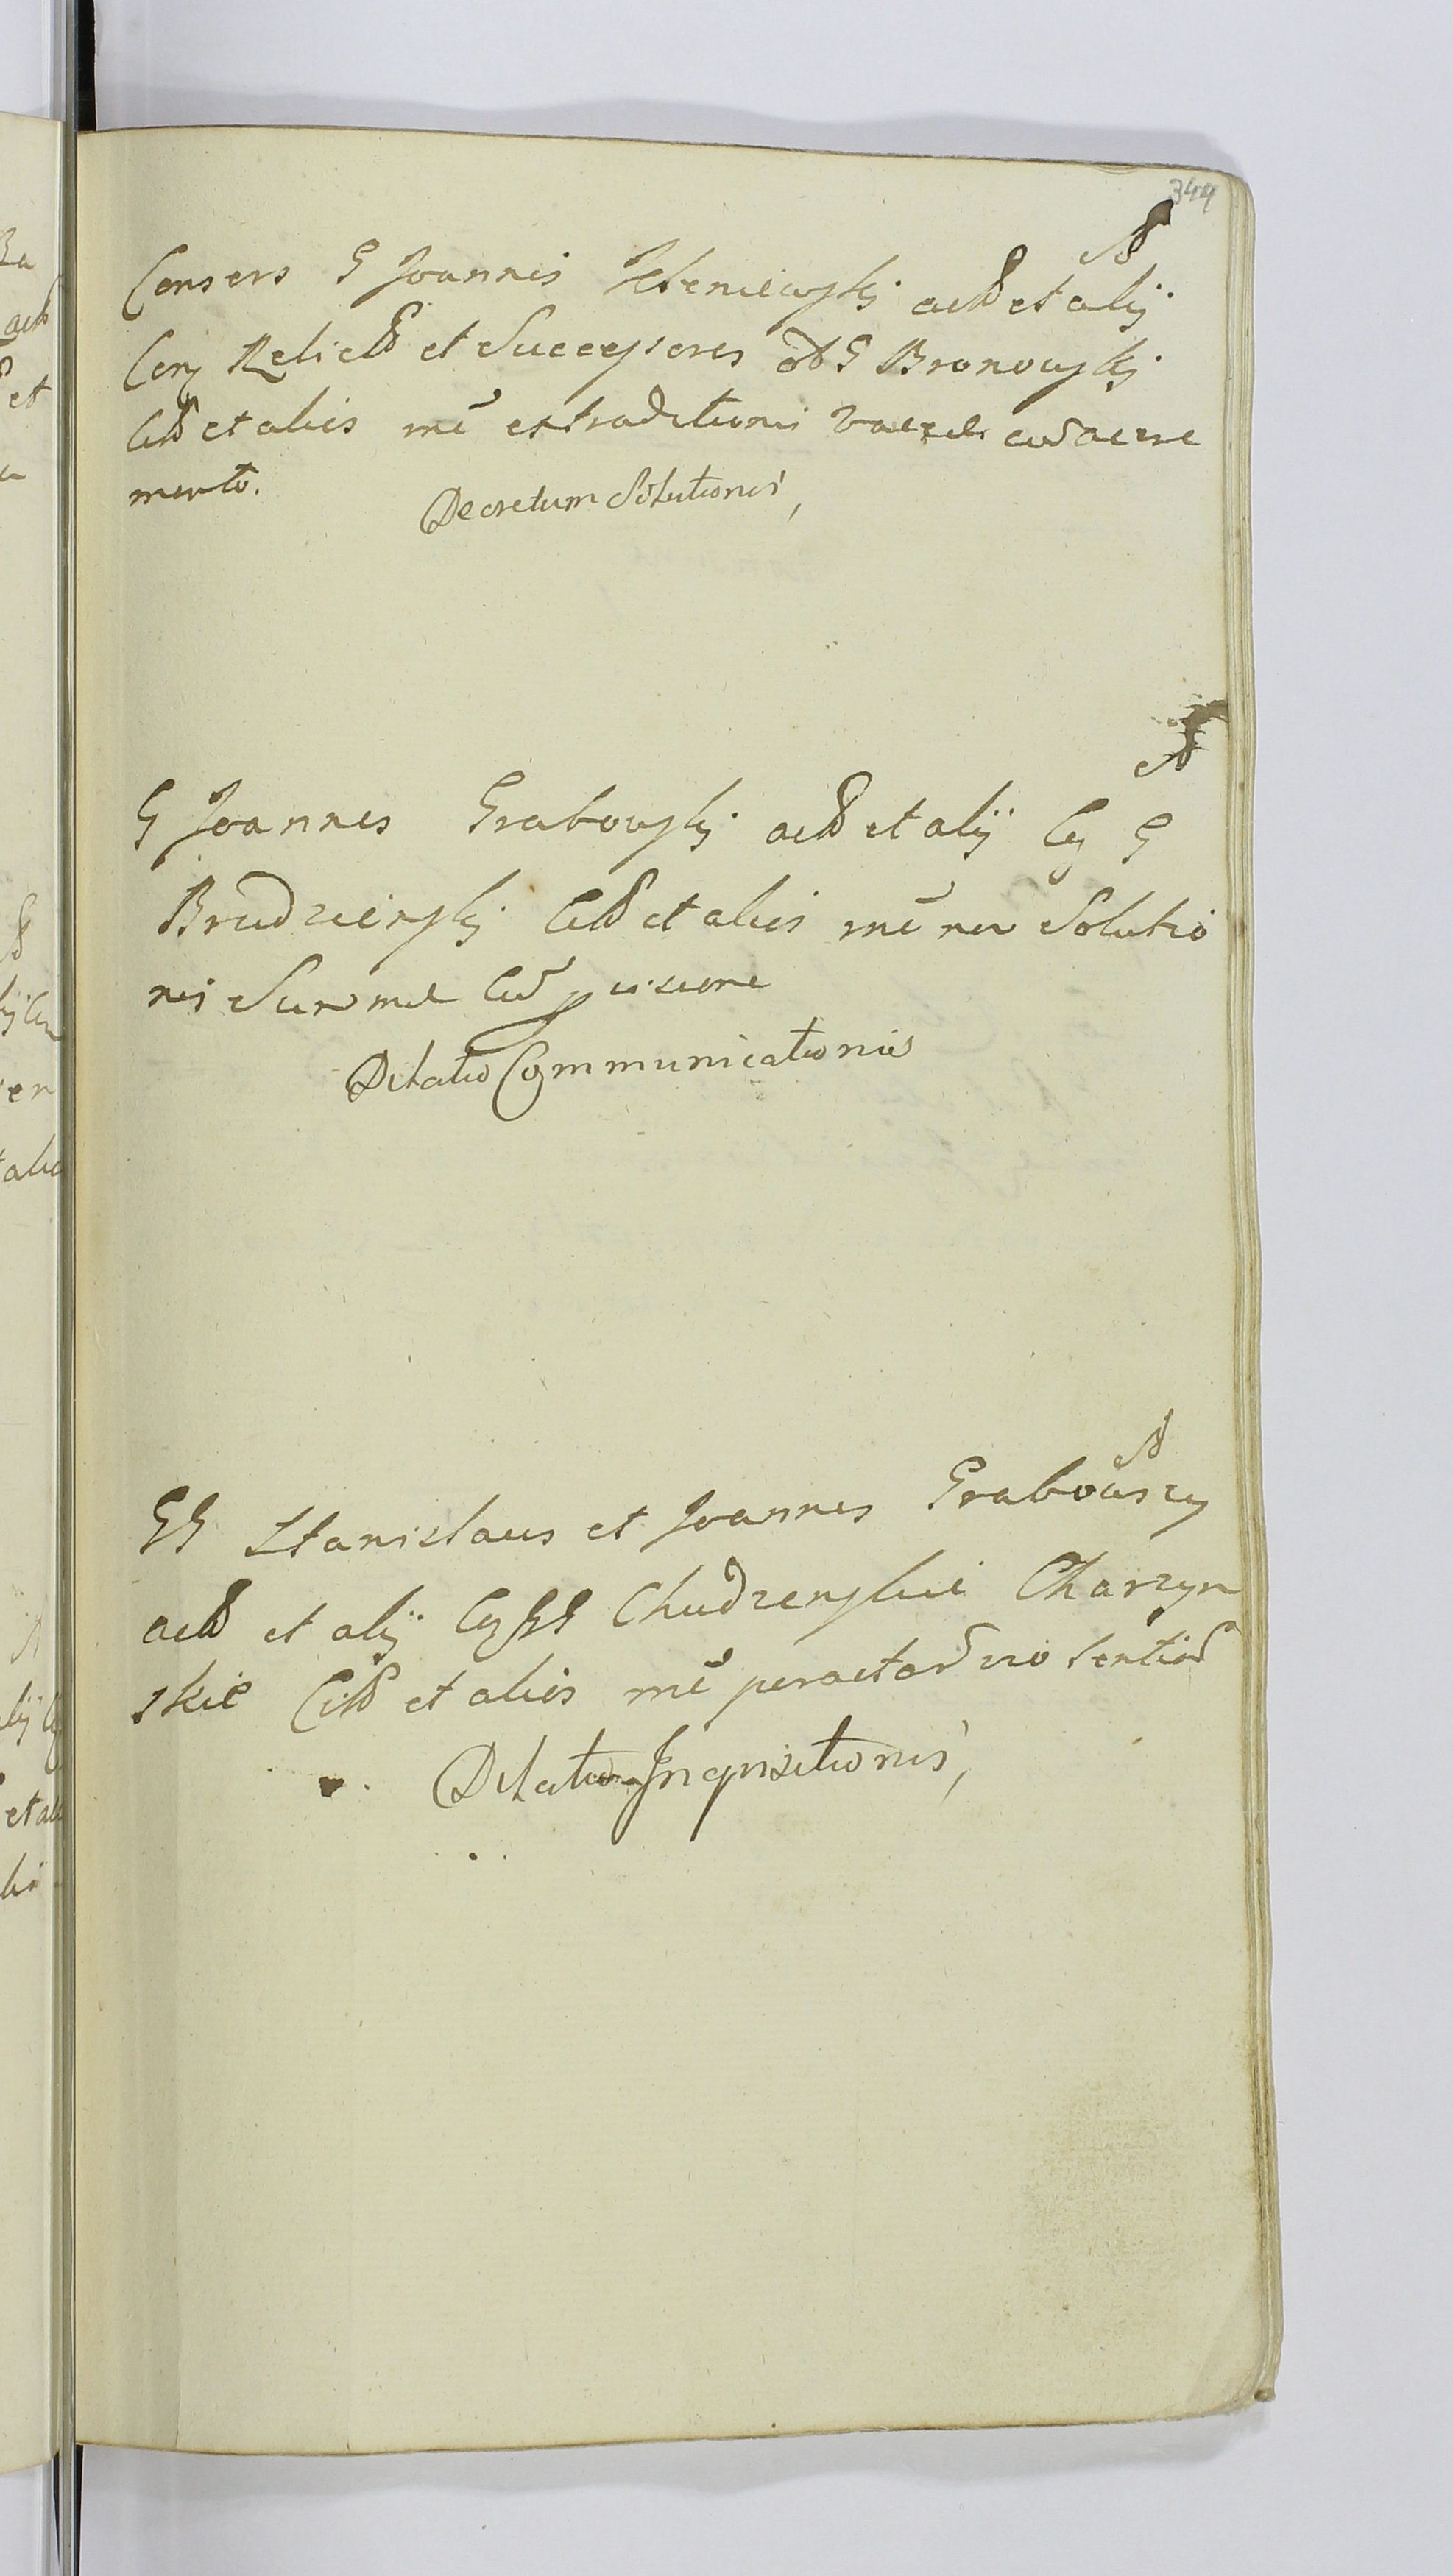 344
Consors G Joannis Jeleniewskj actd et alij
Conj Relictd et Successores od G Bronowskj
Citd et alios mē extraditionis vaccae cum acere
mento.
Decretum Solutionis,
G Joannes Grabowskj actd et alij Cq G
Brudzienskj Citd et alios mē nōn Solutio
nis Summae Cūm provisione
Dilatio Communicationis
GG Stanislaus et Joannes Grabowscy
actd et alij Cq GG Chudzenskie Charzyn
skie Citd et alios mē peractarūm
Dilatio Inquisitionis,